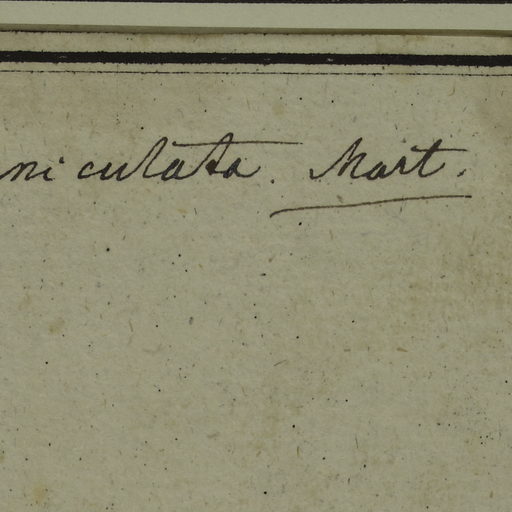 niculata. Mart.